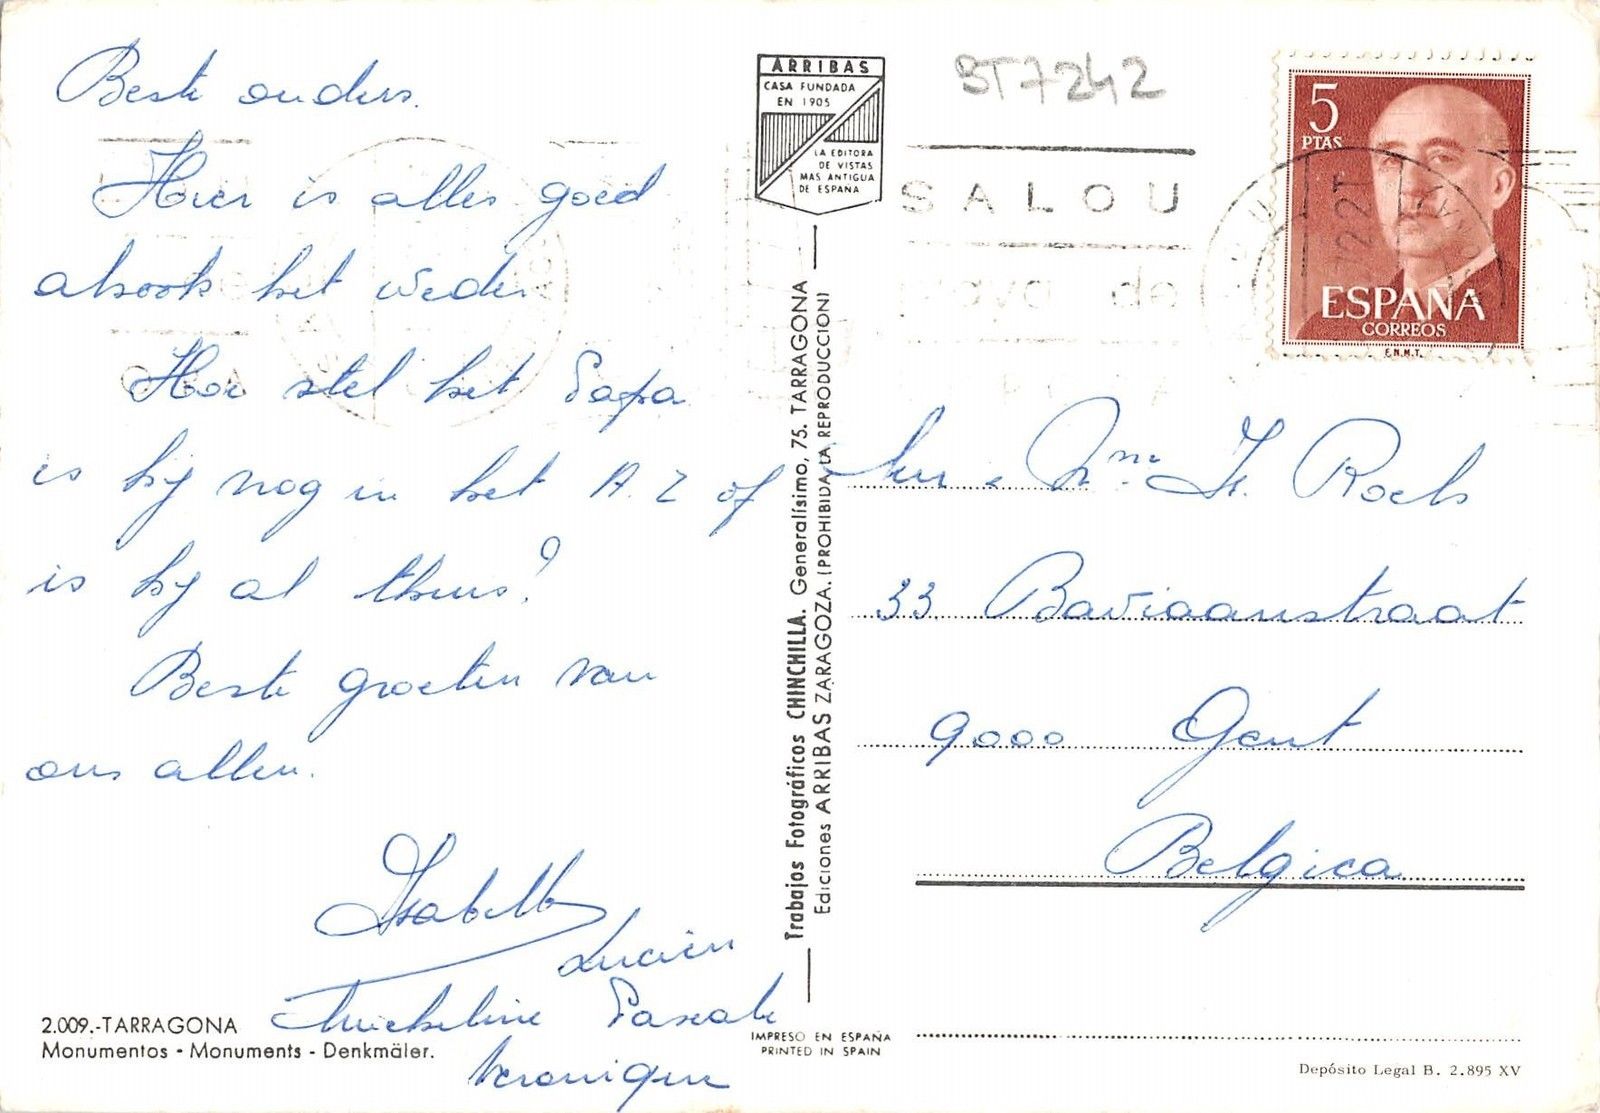 Beste ouders.
Hier is alles goed
alsook het weder.
Hoe stel het Papa
is hij nog in het A.Z of
is hij al thuis?
Beste groeten van
ons allen.
Isabelle
Lucien
Micheline Pascale
Veronique
2.009.-TARRAGONA
Monumentos - Monuments - Denkmäler.
ARRIBAS
CASA FUNDADA
EN 1905
LA EDITORA
DE VISTAS
MAS ANTIGUA
DE ESPAÑA
Trabajos Fotográficos CHINCHILLA. Generalísimo, 75. TARRAGONA
Ediciones ARRIBAS ZARAGOZA. (PROHIBIDA LA REPRODUCCION)
IMPRESO EN ESPAÑA
PRINTED IN SPAIN
BT7242
SALOU
Playa de
5
PTAS
ESPAÑA
CORREOS
F.N.M.T.
Roels
33 Baviaanstraat
9000 Gent
Belgica
Depósito Legal B. 2.895 XV